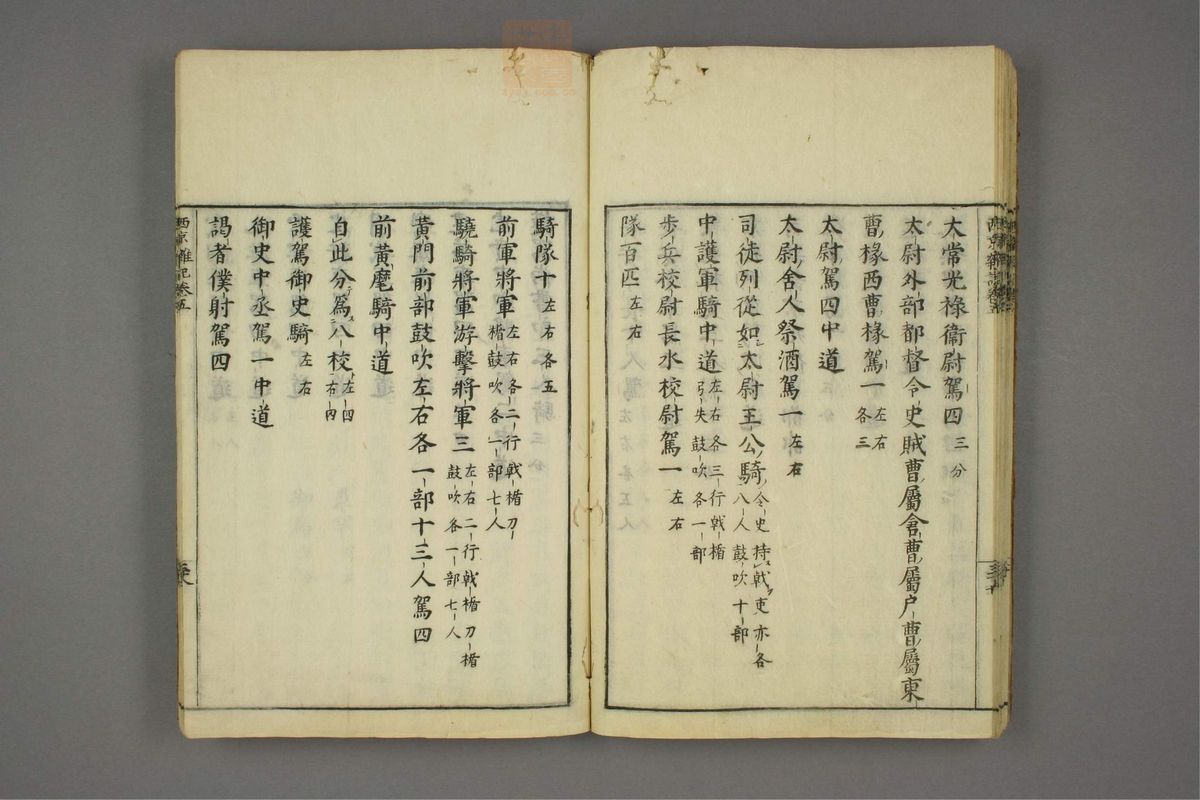 大常光祿衞尉駕四三分
太尉外部都督令史賊曹屬倉曹屬户曹屬東
曹椽西曹椽駕一左右各三
太尉駕四中道
太尉舍人祭酒駕一左右
司徒列從如太尉王公騎令史持戟吏亦各八人鼓吹十部
中護軍騎中道左右各三行戟楯弓矢鼓吹各一部
步兵校尉長水校尉駕一左右
隊百匹左右
騎隊十左右各五
前軍將軍左右各二行戟楯刀楯鼓吹各一部七人
驍騎將軍游擊將軍三左右二行戟楯刀楯鼓吹各一部七人
黃門前部鼓吹左右各一部十三人駕四
前黃麾騎中道
自此分為八校左四右四
護駕御史騎左右
御史中丞駕一中道
謁者僕射駕四
西京雜記卷五